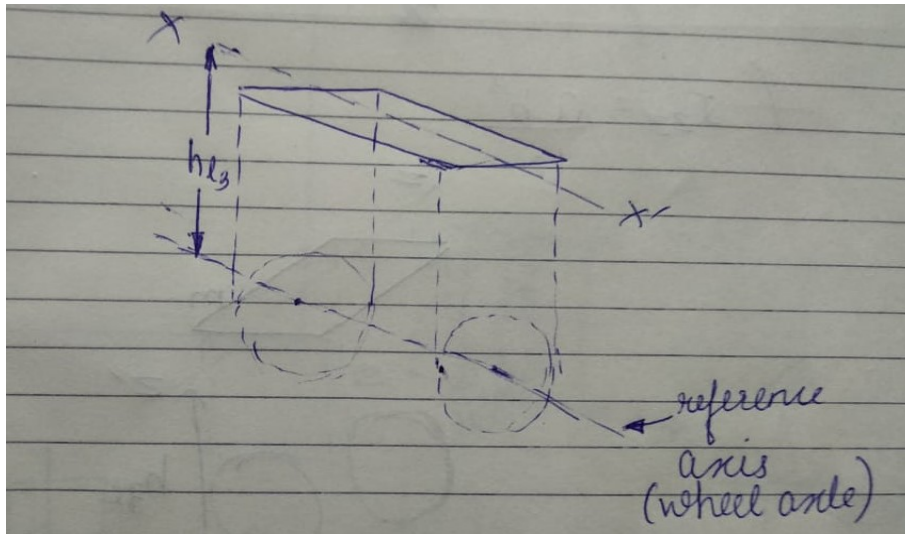 X
hl₃
X'
reference
axis
(wheel axle)